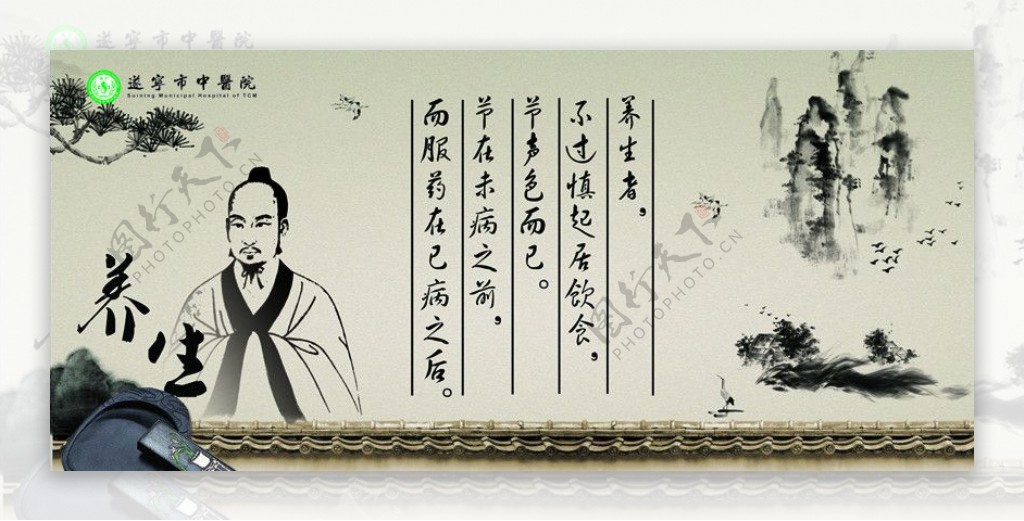 遂宁市中醫院
Suining Municipal Hospital of TCM
养生者，
不过慎起居饮食，
节声色而已。
节在未病之前，
而服药在已病之后。
养生
图行天下
PHOTOPHOTO.CN
图行天下
PHOTOPHOTO.CN
遂宁市中醫院